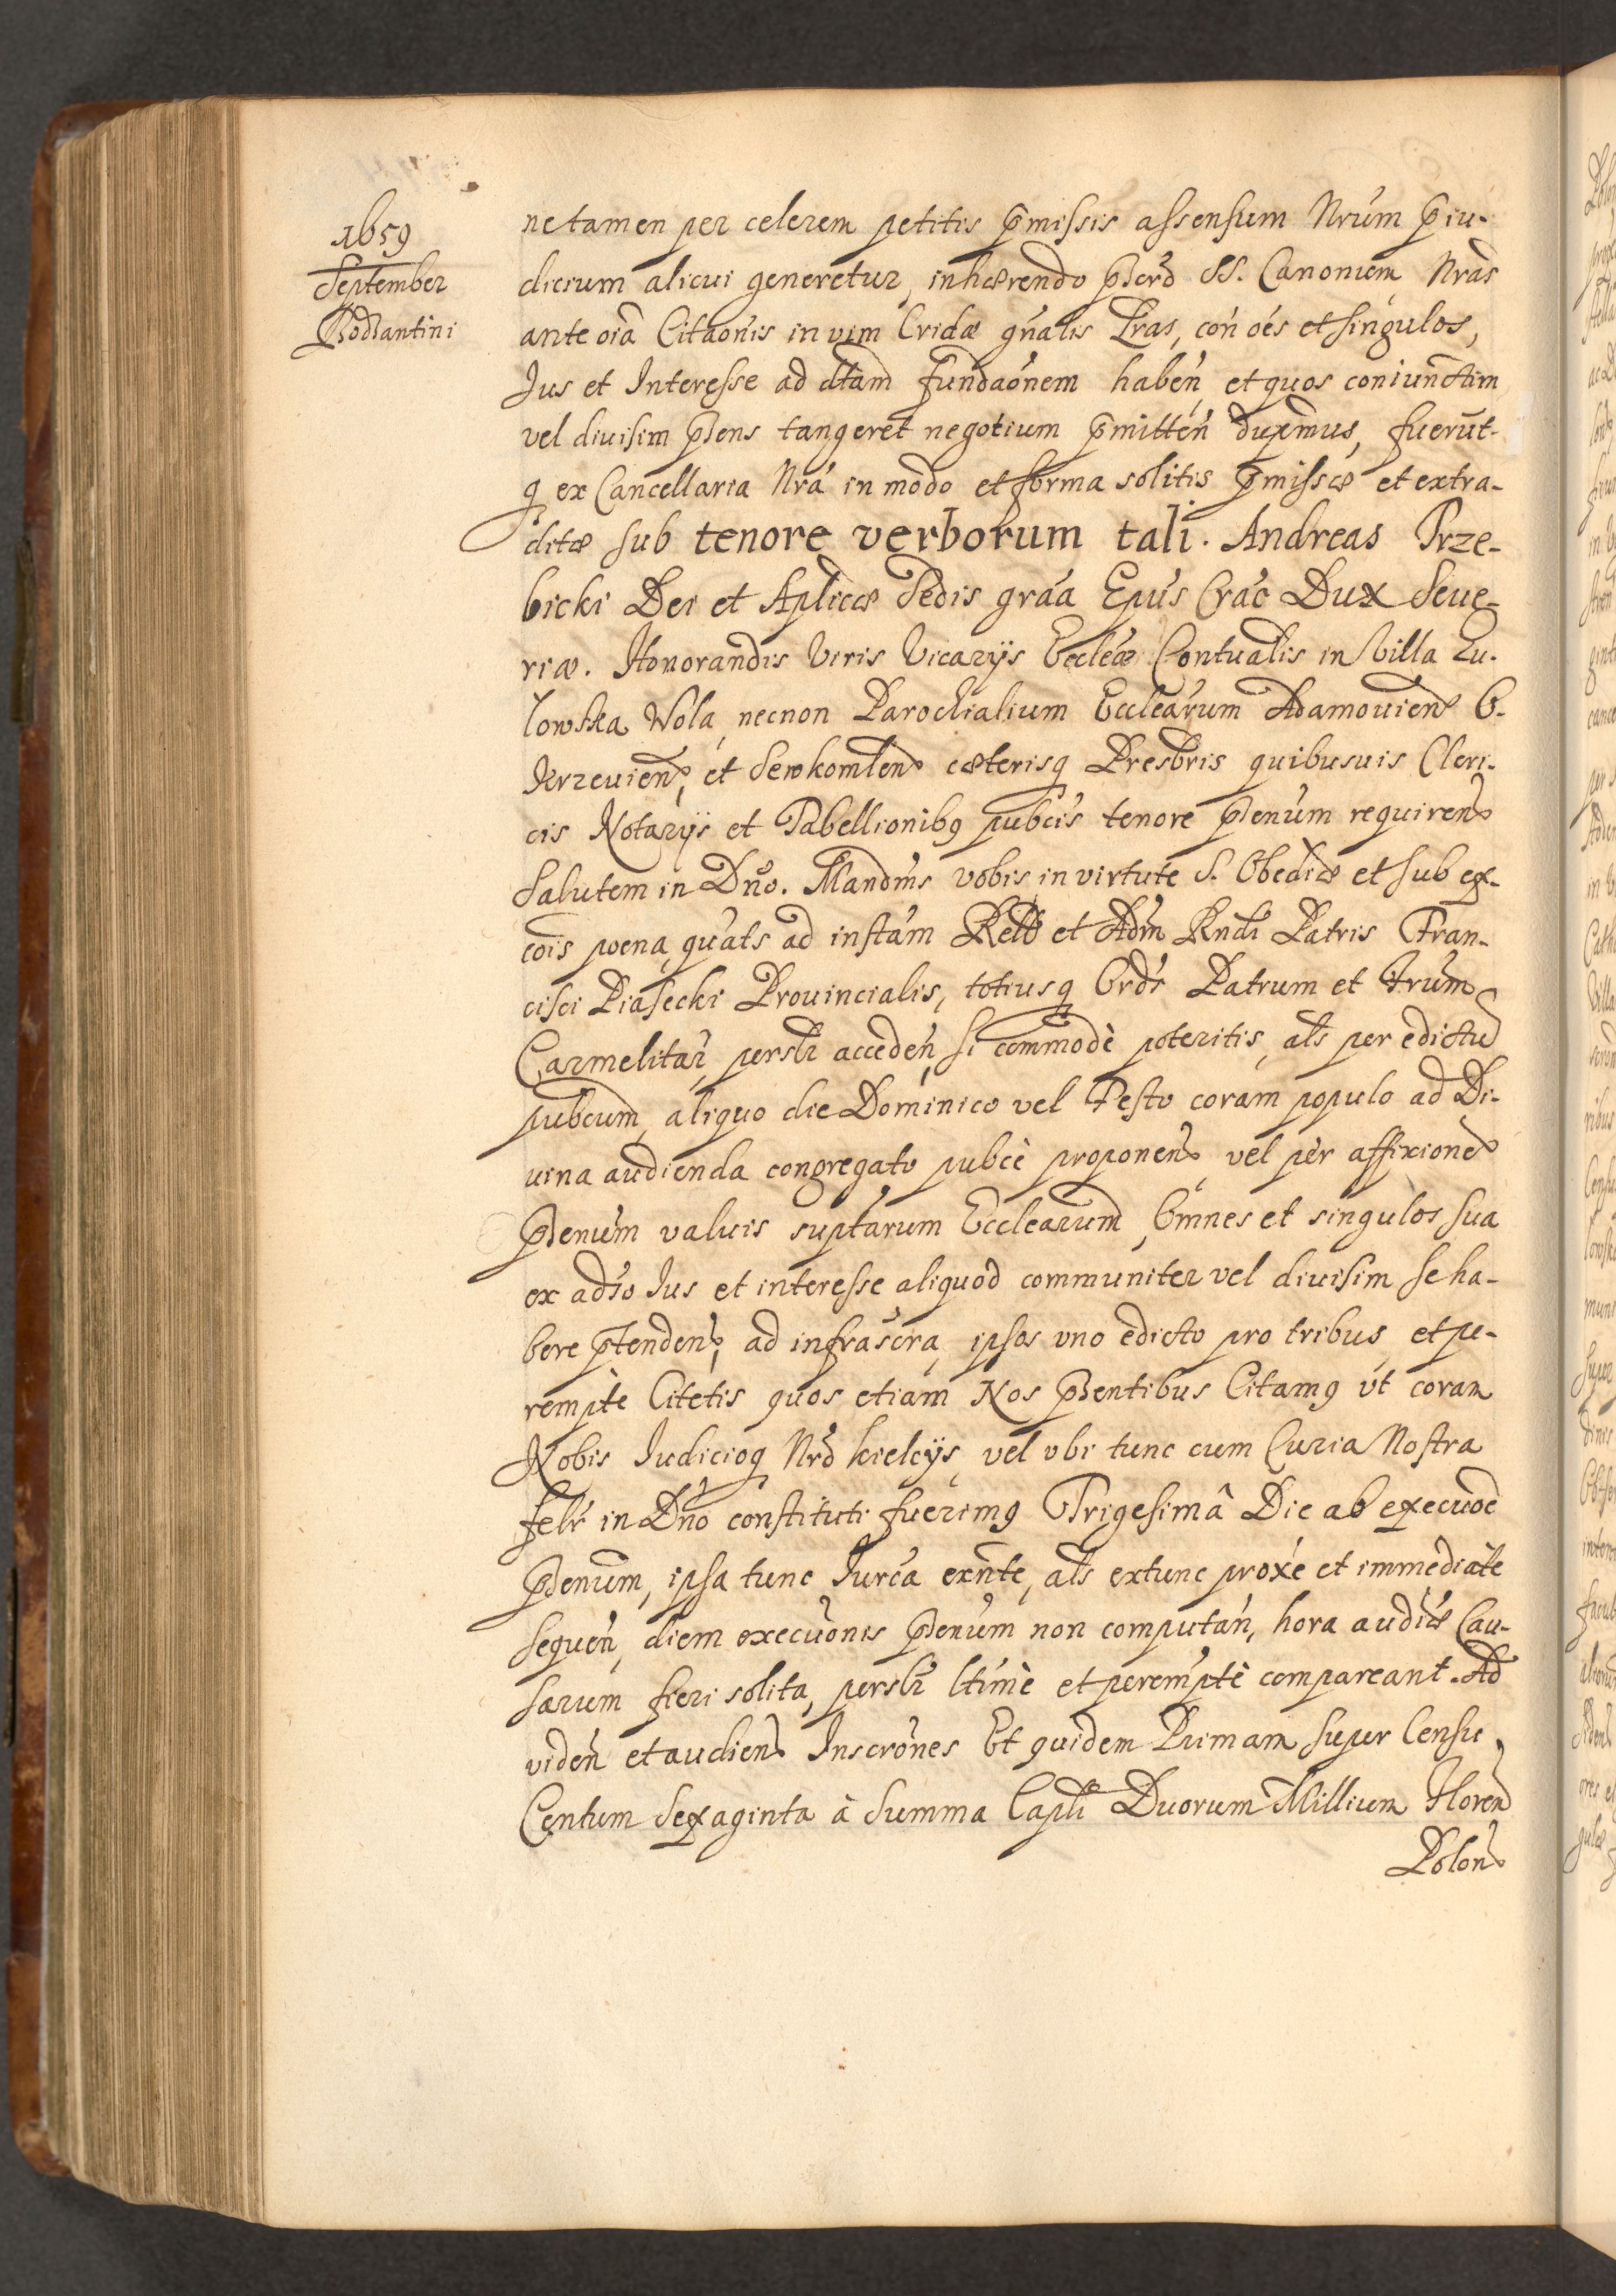 1659
September
Bodzantini
ne tamen per celerem petitis p̄missis assensum Nrūm p̄iu-
dicium alicui generetur, inhærendo SS. Canonum Nrās
ante oīa Citaōnis in vim Cridæ gn̄alis Lras, con̄ oēs et singulos,
Ius et Interesse ad dtām fundaōnem habēn, et quos coniunctim
vel divisim p̄sens tangeret negotium p̄mittēn duxīmus, fuerūt-
q ex Cancellaria Nrā in modo et forma solitis p̄missæ et extra-
ditæ sub tenore verborum tali. Andreas Trze-
bicki Dei et Aplicæ Sedis grāa Epūs Crāc Dux Seue-
riæ. Honorandis Viris Vicarijs Eccleæ Contualis in Villa Zu-
lowska Wola, necnon Parochialium Ecclearum Adamouien O-
krzeuien, et Serokomlen cæterisq Presbris quibusuis Cleri-
cis Notarijs et Tabellionibq pubcis tenore p̄senūm requiren
Salutem in Dnō. Mandm̄s vobis in virtute S. Obediæ et sub ex-
cois poena, quāts ad instām Relł et Adm̄ Rndi Patris Fran-
cisci Piasecki Prouincialis, totiusq Ords Patrum et Frūm
Carmelitar, perslr accedēn, si commodè poteritis, als per edictu
pubcum, aliquo die Dominico vel Festo coram populo ad Di-
uina audienda congregato pubcè proponen, vel per affixione
p̄senūm valuis suptarum Ecclearum, Omnes et singulos sua
ex adso Ius et interesse aliquod communiter vel divisim se ha-
bere p̄tenden, ad infrascra, ipsos uno edicto pro tribus et pe-
remptè Citetis quos etiam Nos p̄sentibus Citamq ut coram
Nobis Iudicioq Nrō Kielcijs, vel ubi tunc cum Curia Nostra
felr in Dnō constituti fuerimq Trigesimâ Die ab execuōe
p̄senūm, ipsa tunc Iurca exn̄te, als extunc proxè et immediatè
sequēn, diem execuōnis p̄senūm non computān, hora audiæ Cau-
sarum fieri solita, perslr ltimè et peremptè compareant. Ad
vidēn et audien Inscrōnes Et quidem Primam super Censu
Centum Sexaginta à Summa Capli Duorum Millium Floren
Polon